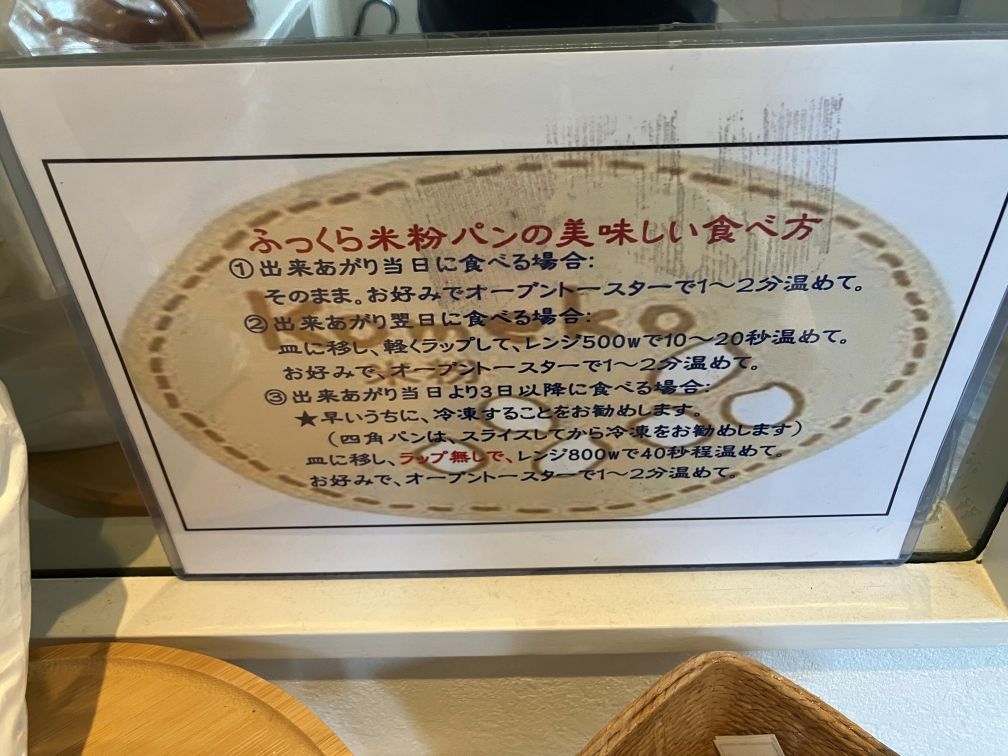 ふっくら米粉パンの美味しい食べ方
①出来あがり当日に食べる場合:
そのまま。お好みでオーブントースターで1～2分温めて。
②出来あがり翌日に食べる場合:
皿に移し、軽くラップして、レンジ500wで10～20秒温めて。
お好みで、オーブントースターで1～2分温めて。
③出来あがり当日より3日以降に食べる場合:
★早いうちに、冷凍することをお勧めします。
（四角パンは、スライスしてから冷凍をお勧めします）
皿に移し、ラップ無しで、レンジ800wで40秒程温めて。
お好みで、オーブントースターで1～2分温めて。